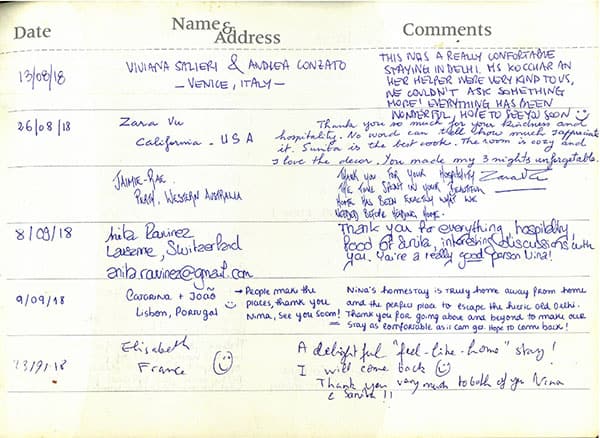 Date Name & Address Comments
13/08/18 VIVIANA SALIERI & ANDREA CONZATO
– VENICE, ITALY –
THIS WAS A REALLY CONFORTABLE
STAYING IN DELHI. MS KOCCHAR AN
HER HELPER WERE VERY KIND TO US,
WE COULDN'T ASK SOMETHING
MORE! EVERYTHING HAS BEEN
WONDERFUL, HOPE TO SEE YOU SOON
26/08/18 Zara Vu
California - USA
Thank you so much for your kindness and
hospitality. No word can tell how much I appreciate
it. Sunita is the best cook. The room is cozy and
I love the decor. You made my 3 nights unforgetable.
JAIMIE-RAE
PERTH, WESTERN AUSTRALIA
THANK YOU FOR YOUR HOSPITALITY
THE TIME SPENT IN YOUR BEAUTIFUL
HOME HAS BEEN EXACTLY WHAT WE
NEEDED BEFORE HEADING HOME.
8/09/18 Anita Ravinez
Lausanne, Switzerland
anita.ravinez@gmail.com
Thank you for everything, hospitality,
food of Sunita, interesting discussions with
you. You're a really good person Nina!
9/09/18 CATARINA + JOÃO
LISBON, PORTUGAL
→ PEOPLE MAKE THE
PLACES, THANK YOU
NINA, SEE YOU SOON!
NINA'S HOMESTAY IS TRULY HOME AWAY FROM HOME
AND THE PERFECT PLACE TO ESCAPE THE HECTIC OLD DELHI.
THANK YOU FOR GOING ABOVE AND BEYOND TO MAKE OUR
STAY AS COMFORTABLE AS IT CAN GET. HOPE TO COME BACK!
13/9/18 Elisabeth
France
A delightful "feel-like-home" stay!
I will come back
Thank you very much to both of you Nina
& Sunita !!